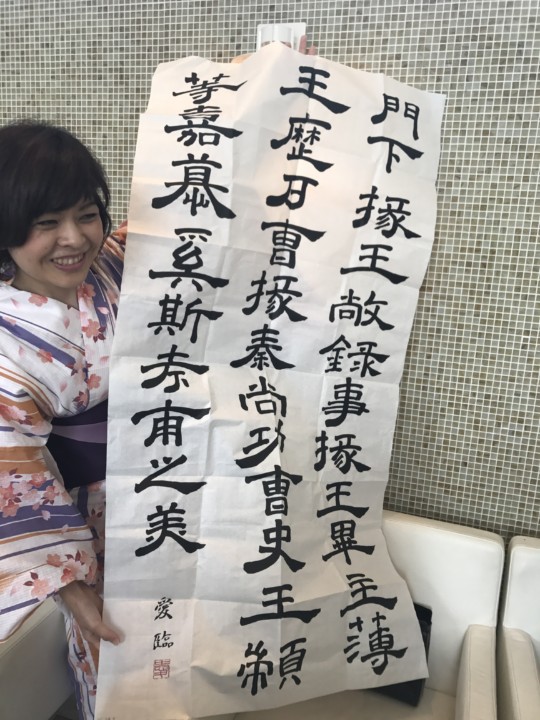 門下掾王敞錄事掾王畢主薄
王歷戶曹掾秦尚功曹史王顓
等嘉慕奚斯考甫之美
愛臨